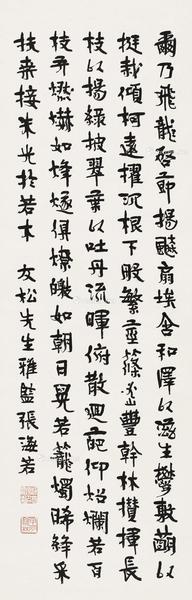 爾乃飛龍啓節揚飈扇埃含和澤以滋生鬱敷萌以
挺栽傾柯遠擢沉根下般繁莖篠密豐幹林攢揮長
枝以揚綠披翠葉以吐丹流暉俯散迴葩仰炤爛若百
枝并燃爀如烽燧俱燎皦如朝日晃若籠燭晞絳采
扶桒接朱光於若木 友松先生雅監張海若